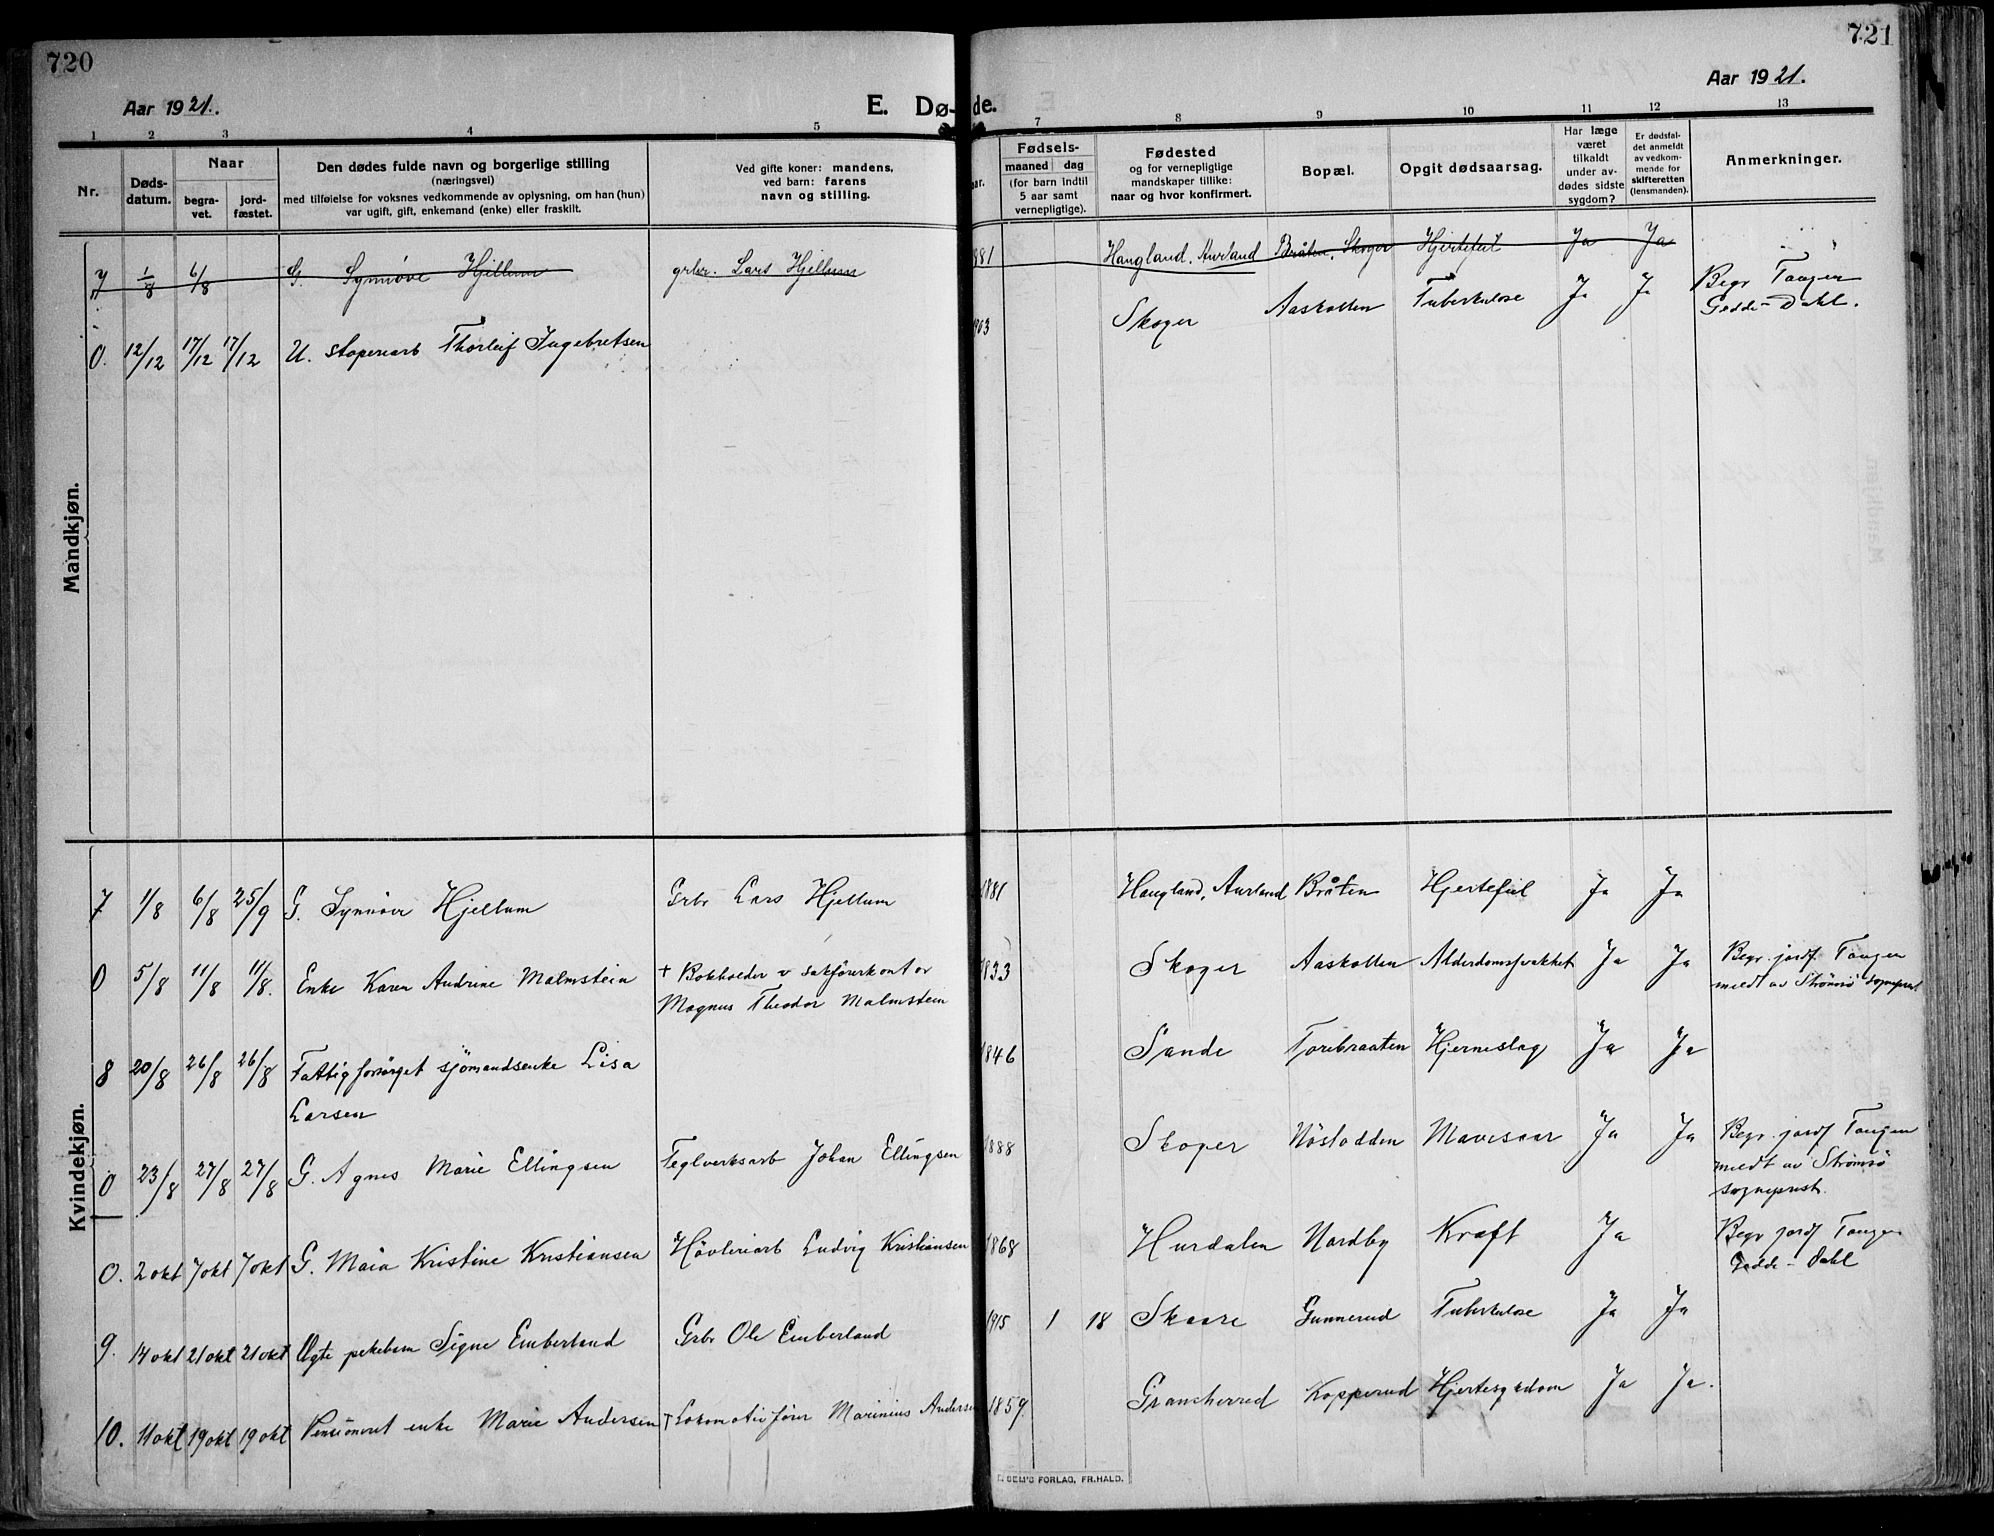 720
721
Aar 1921.
E. Dø-
de.
Aar 1921.
1 2 3 4 5 7 8 9 10 11 12 13
Nr.
Døds-
datum.
Naar
begra-
vet.
jord-
fæstet.
Den dødes fulde navn og borgerlige stilling
(næringsvei)
med tilføielse for voksnes vedkommende av oplysning, om han (hun)
var ugift, gift, enkemand (enke) eller fraskilt.
Ved gifte koner: mandens,
ved barn: farens
navn og stilling.
ar.
Fødsels-
maaned dag
(for barn indtil
5 aar samt
vernepligtige).
Fødested
og for vernepligtige
mandskaper tillike:
naar og hvor konfirmert.
Bopæl.
Opgit dødsaarsag.
Har læge
været
tilkaldt
under av-
dødes sidste
sygdom?
Er dødsfal-
det anmeldt
av vedkom-
mende for
skifteretten
(lensmanden).
Anmerkninger.
Mandkjøn.
7 1/8 6/8 G. Synnöve Hjellum grbr. Lars Hjellum 881 Haugland, Aurland Bråten, Skoger Hjertefeil Ja Ja
0. 12/12 17/12 17/12 U. stoperiarb Thorleif Ingebretsen 903 Skoger Aaskollen Tuberkulose Ja Ja Begr Tangen
Gedde-Dahl.
Kvindekjøn.
7 1/8 6/8 25/9 G. Synnöve Hjellum Grbr Lars Hjellum 1881 Haugland, Aurland Bråten Hjertefeil Ja Ja
0 5/8 11/8 11/8. Enke Karen Andrine Malmstein + Bokholder v sakförerkontor
Magnus Theodor Malmstein 1833 Skoger Aaskollen Alderdomssvakhet Ja Ja Begr. jordf. Tangen
meldt av Strömsö sogneprest
8 20/8 26/8 26/8 Fattigforsörget sjömandsenke Lisa
Larsen 1846 Sande Torebraaten Hjerneslag Ja Ja
0 23/8 27/8 27/8 G. Agnes Marie Ellingsen Teglverksarb Johan Ellingsen 1888 Skoger Nöslodden Mavesaar Ja Ja Begr. jordf Tangen
meldt av Strömsö
sogneprest.
0. 2 okt 7 okt 7 okt G. Maia Kristine Kristiansen Hövleriarb Ludvig Kristiansen 1868 Hurdalen Nordby Kræft Ja Begr jordf Tangen
Gedde-Dahl
9. 14 okt 21 okt 21 okt Ægte pikebarn Signe Emberland Grbr Ole Emberland 1915 1 18 Skaare Gunnerud Tuberkulose Ja Ja
10. 11 okt 19 okt 19 okt Pensioneret enke Marie Andersen + Lokomotivförer Marinius Andersen 1859. Gransherred Kopperud Hjertesygdom Ja Ja.
SEM'S FORLAG, FR.HALD.